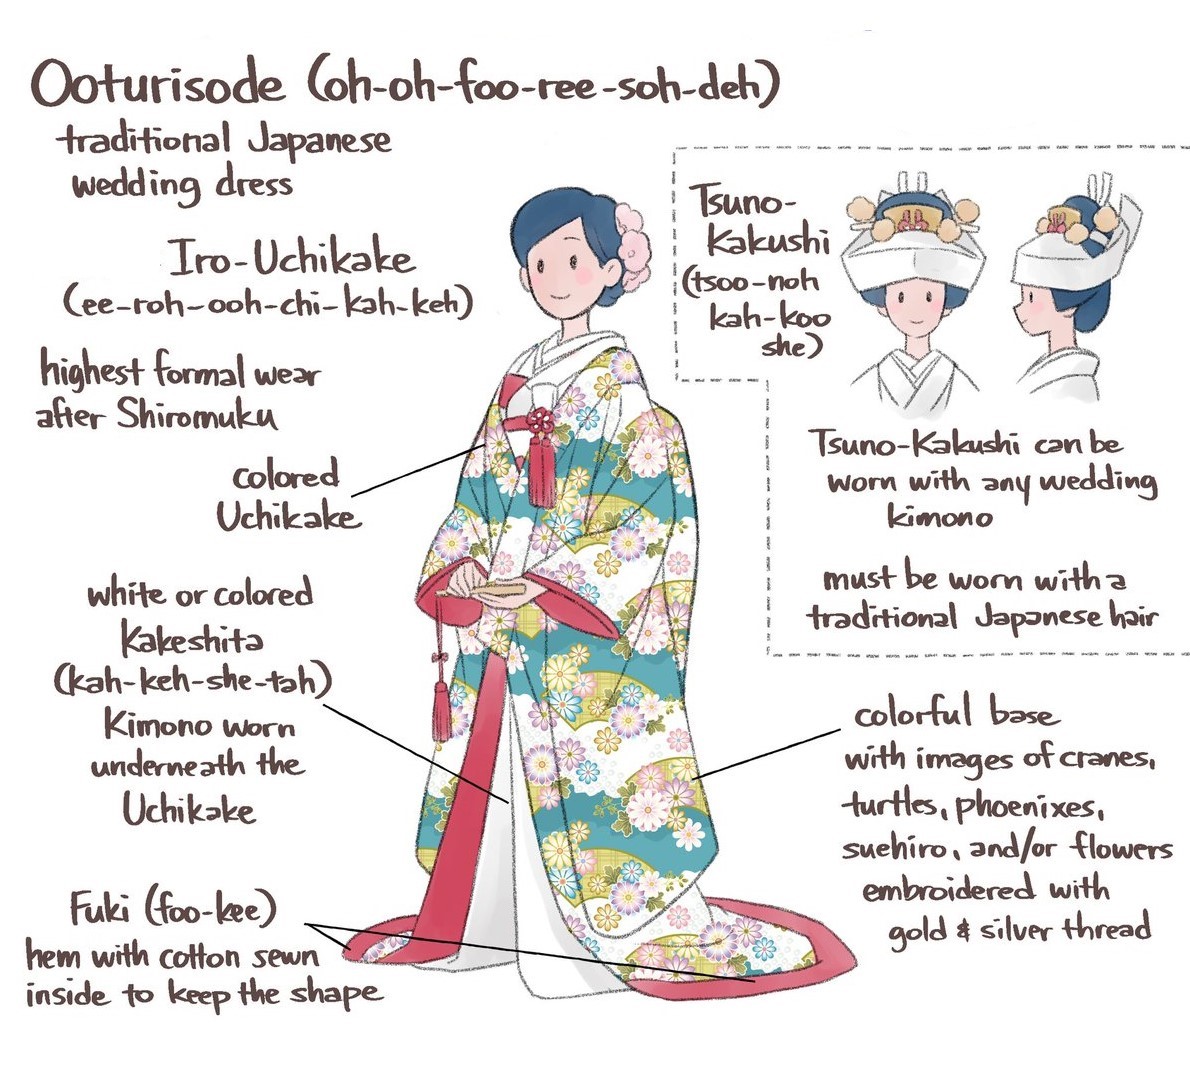 Ooturisode (oh-oh-foo-ree-soh-deh)
traditional Japanese
wedding dress
Iro-Uchikake
(ee-roh-ooh-chi-kah-keh)
highest formal wear
after Shiromuku
colored
Uchikake
white or colored
Kakeshita
(kah-keh-she-tah)
Kimono worn
underneath the
Uchikake
Fuki (foo-kee)
hem with cotton sewn
inside to keep the shape
Tsuno-
Kakushi
(tsoo-noh
kah-koo
she)
Tsuno-Kakushi can be
worn with any wedding
kimono
must be worn with a
traditional Japanese hair
colorful base
with images of cranes,
turtles, phoenixes,
suehiro, and/or flowers
embroidered with
gold & silver thread